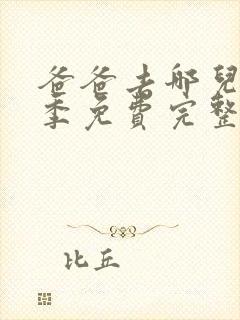 爸爸去哪兒
季免費完整
比丘